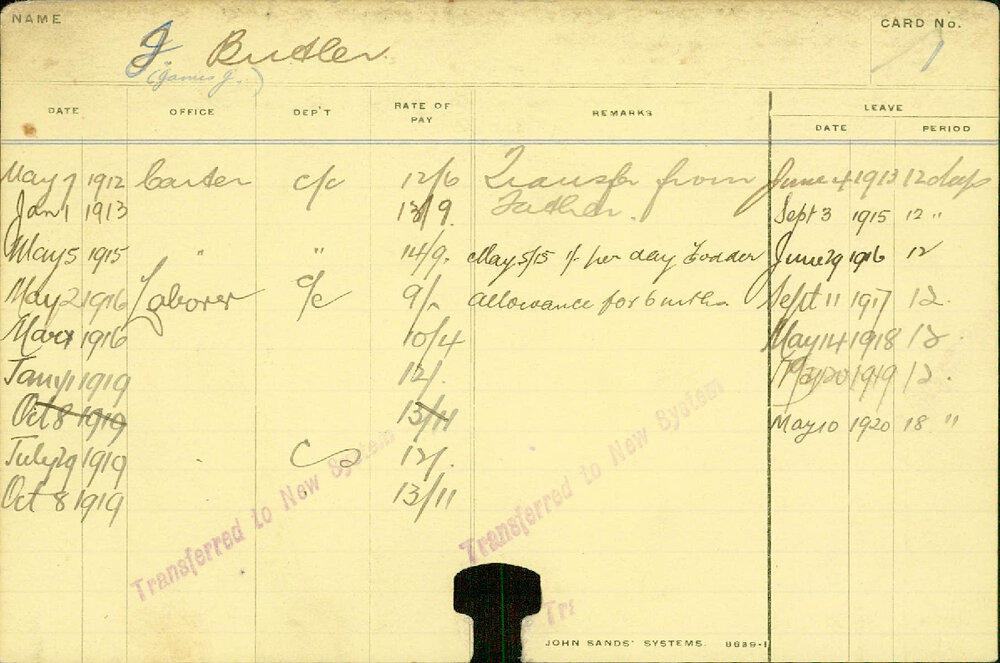 NAME
CARD No.
J. Butler
1
(James J.)
DATE OFFICE DEP'T RATE OF PAY REMARKS LEAVE
DATE PERIOD
May 7 1912 Carter c/c 12/6 Transfer from June 4 1913 12 days
Jan 1 1913 13/9. Father. Sept 3 1915 12 "
May 5 1915 " " 14/9. May 5/15 1/- per day Fodder June 29 1916 12
May 2 1916 Laborer c/c 9/- allowance for 6 mths. Sept 11 1917 12.
1916 10/4 May 14 1918 12
Jany 1 1919 12/. 20 1919 12.
Oct 8 1919 13/11 May 10 1920 18 "
July 29 1919 12/.
Oct 8 1919 13/11
Transferred to New System
Transferred to New System
Tr
JOHN SANDS' SYSTEMS. 8639-1